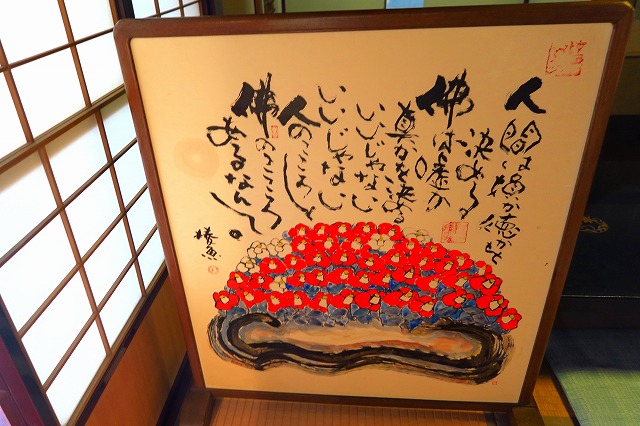 人間は損か徳かを
決める
佛は嘘か
真かを
いいじゃない
いいじゃない
人のこころと
佛のこころ
あるなんて。
椿魚